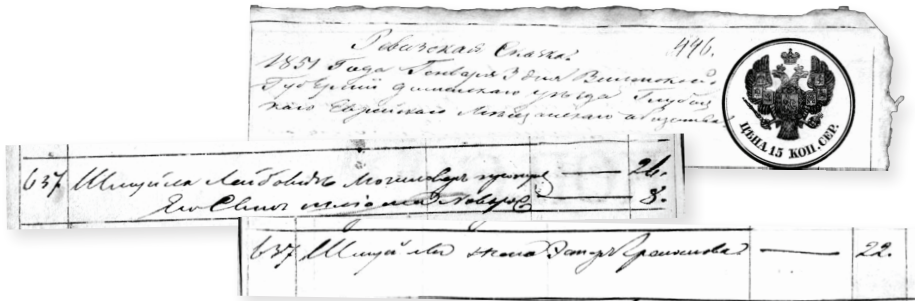 Ревизская Сказка 446.
1851 Года Генваря 3 дня Виленской
Губернии Дисненскаго уезда Глубоц
каго Еврейскаго Мещанскаго общества
ЦѢНА 15 КОП. СЕР.
637 Шмуйла Лейбовичъ 26.
Его Сынъ 8.
637 Шмуйлы жена 22.